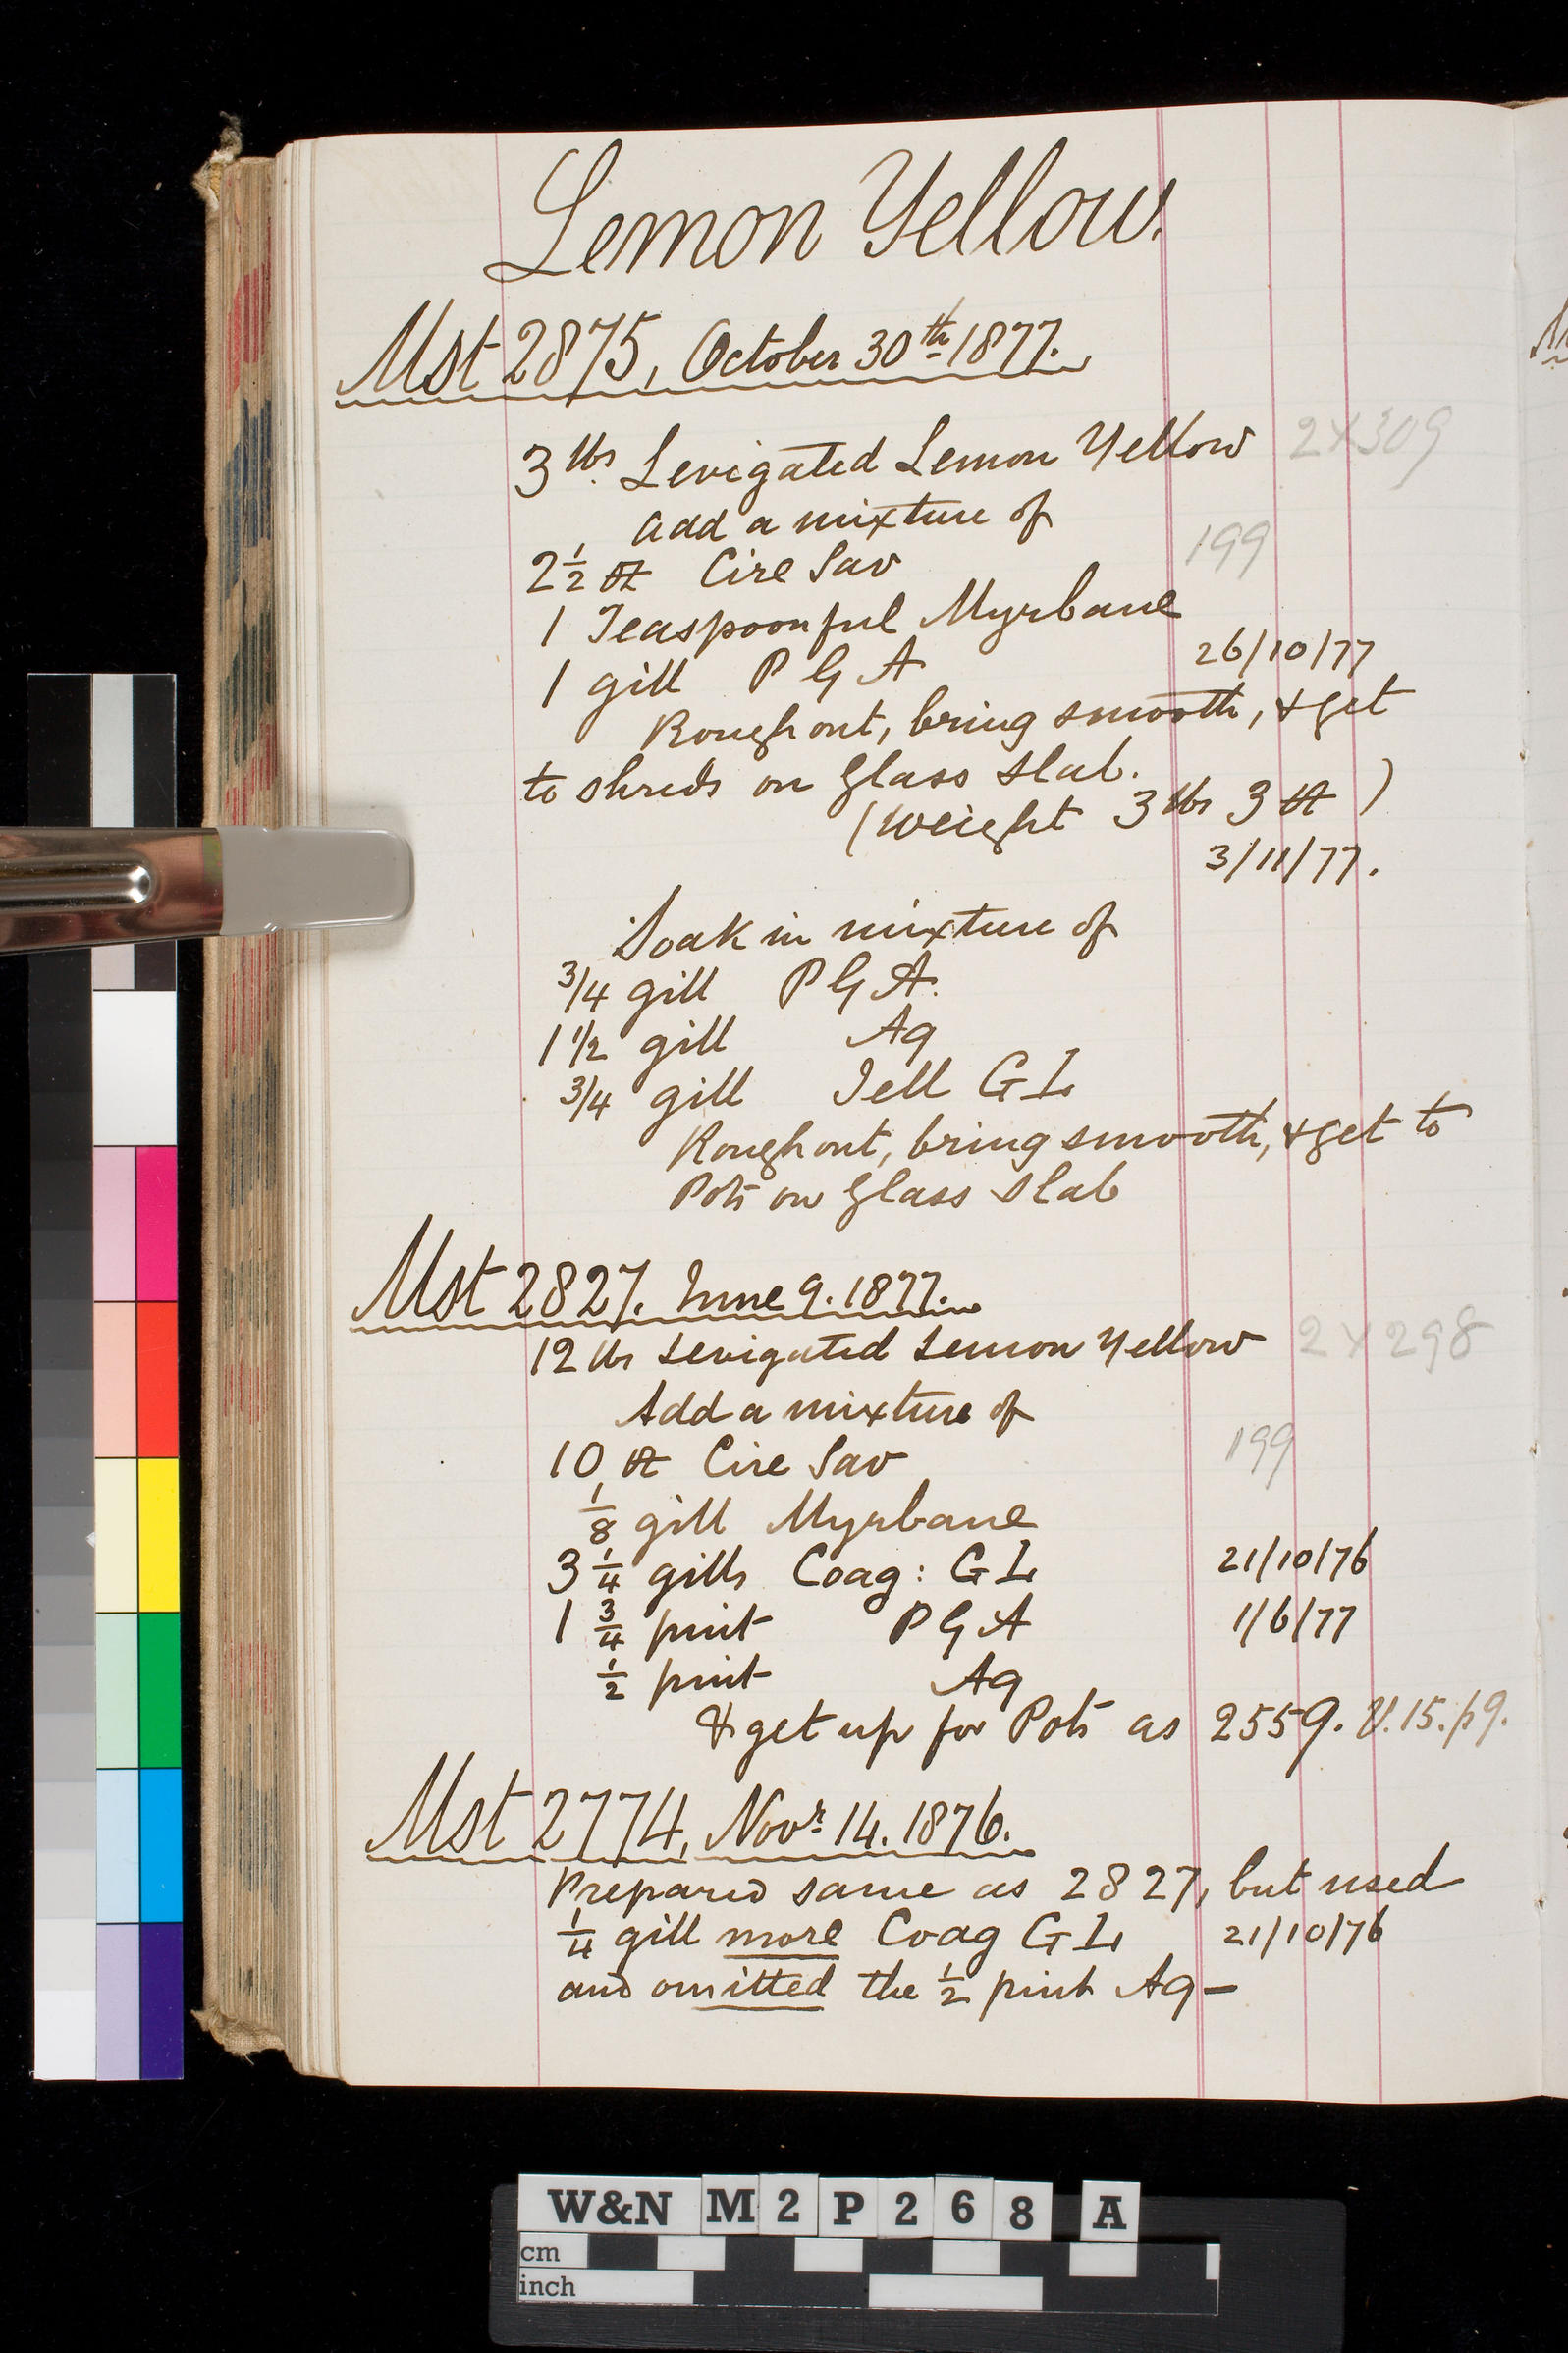 Lemon Yellow.
Mst 2875, October 30th 1877.
3 lbs. Levigated Lemon Yellow 2X309
add a mixture of
2 1/2 oz Cire Sav 199
1 Teaspoonful Myrbane
1 gill P G A 26/10/77
Rough out, bring smooth, & get
to shreds on Glass Slab.
(Weight 3 lbs 3 oz )
3/11/77.
Soak in mixture of
3/4 gill P G A.
1 1/2 gill Aq
3/4 gill Jell G L
Rough out, bring smooth, & get to
Pots on Glass Slab
Mst 2827. June 9. 1877.
12 lbs Levigated Lemon Yellow 2X298
Add a mixture of
10 oz Cire Sav 199
1/8 gill Myrbane
3 1/4 gills Coag: G L 21/10/76
1 3/4 pint P G A 1/6/77
1/2 pint Aq
& get up for Pots as 2559. V.15.p9.
Mst 2774, Novr. 14. 1876.
Prepared same as 2827, but used
1/4 gill more Coag G L 21/10/76
and omitted the 1/2 pint Aq—
W&N M2P268 A
cm
inch